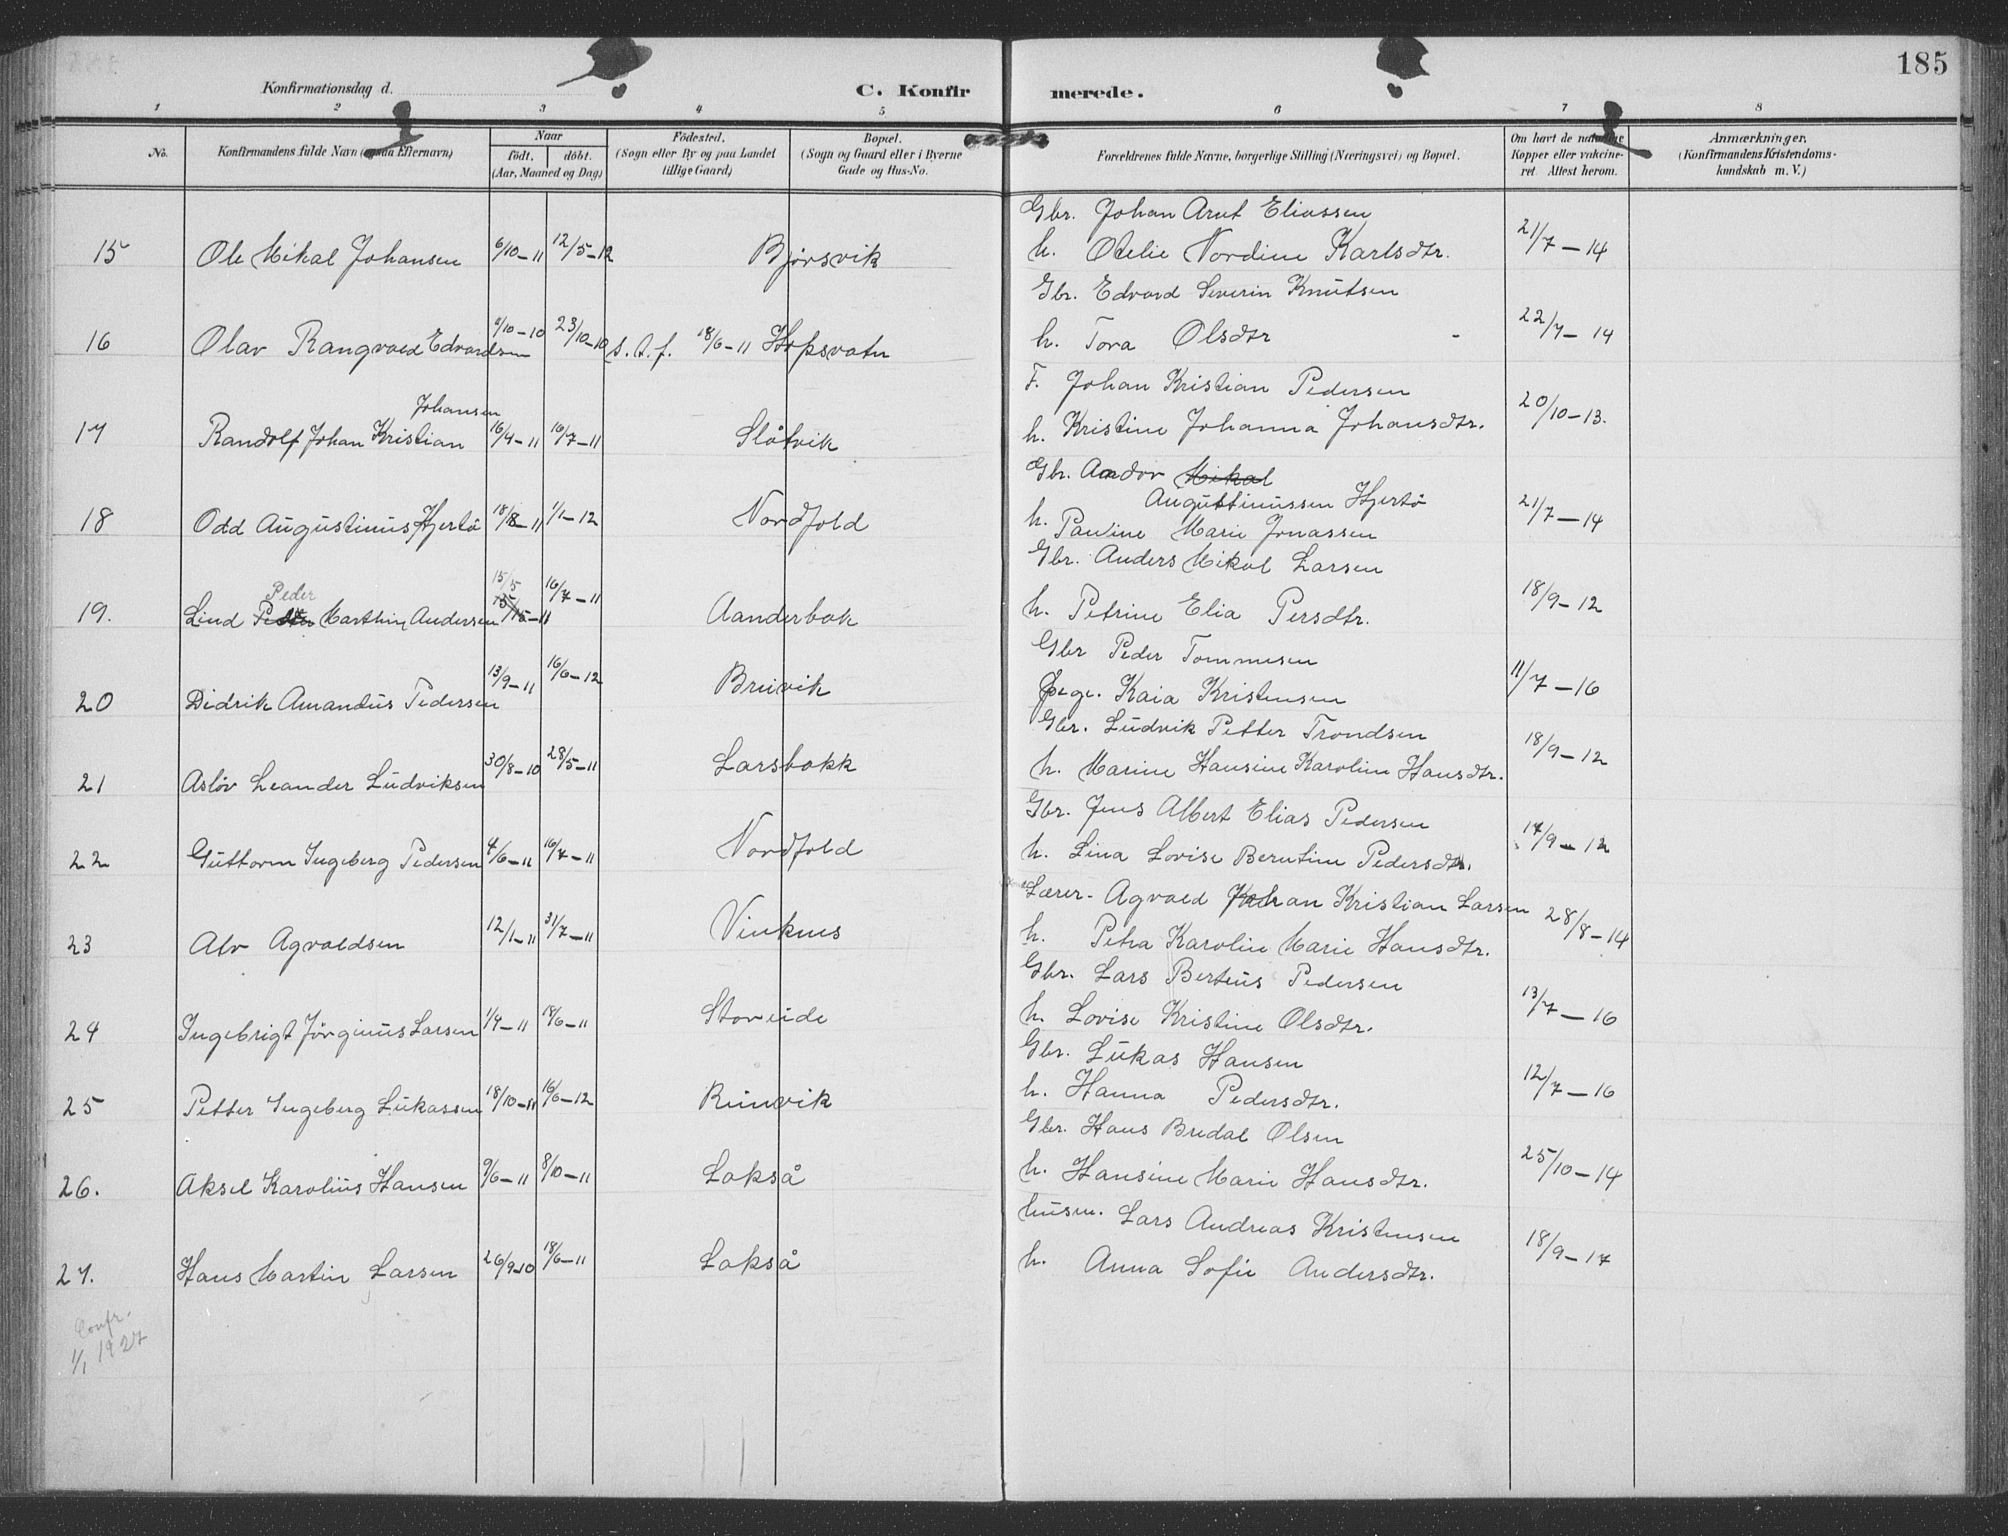 185
Konfirmationsdag d.
C. Konfir
merede.
1 2 3 4 5 6 7 8
No.
Konfirmandens fulde Navn (ogsaa Efternavn)
Naar
født. døbt.
(Aar, Maaned og Dag)
Fødested.
(Sogn eller By og paa Landet
tillige Gaard)
Bopæl.
(Sogn og Gaard eller i Byerne
Gade og Hus-No.
Forældrenes fulde Navne, borgerlige Stilling (Næringsvei) og Bopæl.
Om havt de naturlige
Kopper eller vakcine-
ret. Attest herom.
Anmærkninger.
(Konfirmandens Kristendoms-
kundskab m. V.)
Gbr. Johan Arnt Eliassen
15 Ole Mikal Johansen 6/10-11 12/5-12 Bjørsvik h. Otelie Nordine Karlsdtr. 21/7-14
Gbr. Edvard Severin Knutsen
16 Olav Rangvald Edvardsen 9/10-10 23/10-10 s. t. f. 18/6-11 Hopsvatn h. Tora Olsdtr - 22/7-14
F. Johan Kristian Pedersen
Johansen
17 Randolf Johan Kristian 16/4-11 16/7-11 Slåtvik h. Kristine Johanna Johansdtr. 20/10-13.
Gbr. Andor Mikal
Augustinussen Hjertø
18 Odd Augustinus Hjertø 18/8-11 1/1-12 Nordfold h. Pauline Marie Jonassen 21/7-14
Gbr. Anders Mikal Larsen
Peder 15/5
19. Lind Petter Marthin Andersen 15/15-11 16/7-11 Aanderbak h. Petrine Elia Persdtr. 18/9-12
Gbr Peder Tommesen
20 Didrik Amandus Pedersen 13/9-11 16/6-12 Bruvik Kaia Kristensen 11/7-16
Gbr. Ludvik Petter Trondsen
21 Asløv Leander Ludviksen 30/8-10 28/5-11 Larsbakk h. Marine Hansine Karoline Hansdtr. 18/9-12
Gbr. Jens Albert Elias Pedersen
22 Guttorm Ingeberg Pedersen 4/6-11 16/7-11 Nordfold h. Lina Lovise Berntine Pedersdtr. 17/9-12
Lærer- Agvald Johan Kristian Larsen
23 Alv Agvaldsen 12/1-11 31/7-11 Vinknes h. Petra Karoline Marie Hansdtr. 28/8-14
Gbr. Lars Berteus Pedersen
24 Ingebrigt Jørginus Larsen 1/4-11 18/6-11 Storeide h. Lovise Kristine Olsdtr. 13/7-16
Gbr. Lukas Hansen
25 Petter Ingeberg Lukassen 18/10-11 16/6-12 Runvik h. Hanna Pedersdtr. 12/7-16
Gbr. Hans Bredal Olsen
26. Aksel Karolius Hansen 9/6-11 8/10-11 Lakså h. Hansine Marie Hansdtr. 25/10-14
husm. Lars Andreas Kristensen
27. Hans Martin Larsen 26/9-10 18/6-11 Lakså h. Anna Sofie Andersdtr. 18/9-17
Confr.
1/1 1927